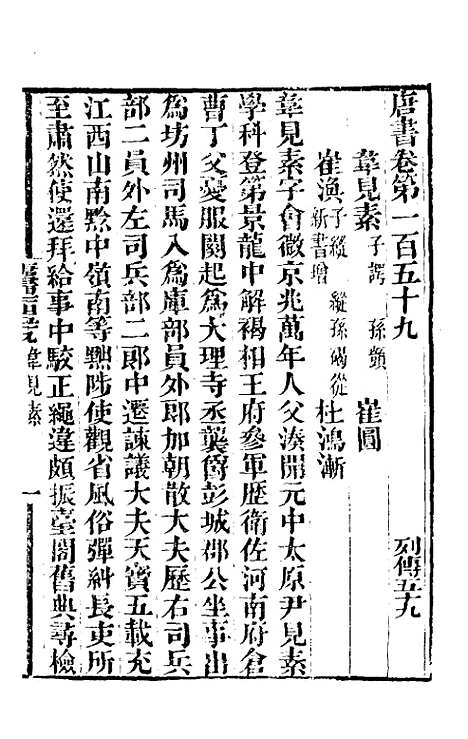 唐書卷第一百五十九　列傳五十九
韋見素 子諤　孫顗　崔圓
崔渙 子縱　縱孫碣從 新書增　杜鴻漸
韋見素字會微京兆萬年人父湊開元中太原尹見素
學科登第景龍中解褐相王府參軍歷衛佐河南府倉
曹丁父憂服闋起爲大理寺丞襲爵彭城郡公坐事出
爲坊州司馬入爲庫部員外郎加朝散大夫歷右司兵
部二員外左司兵部二郎中遷諫議大夫天寶五載充
江西山南黔中嶺南等黜陟使觀省風俗彈糾長吏所
至肅然使還拜給事中駮正繩違頗振臺閣舊典尋檢
韋見素
一